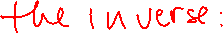 the inverse: